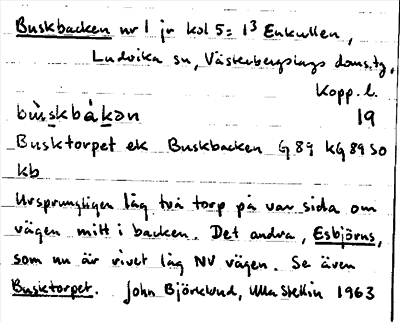 Buskbacken nr 1 jr kol 5 = 1³ Enkullen,
Ludvika sn, Västerbergslags doms.tg,
Kopp. l.
bùskbàkən 19
Busktorpet ek Buskbacken G 89 kG 89 SO
kb
Ursprungligen låg två torp på var sida om
vägen mitt i backen. Det andra, Esbjörns,
som nu är rivet låg NV vägen. Se även
Busktorpet. John Björklund, Ulla Stellin 1963